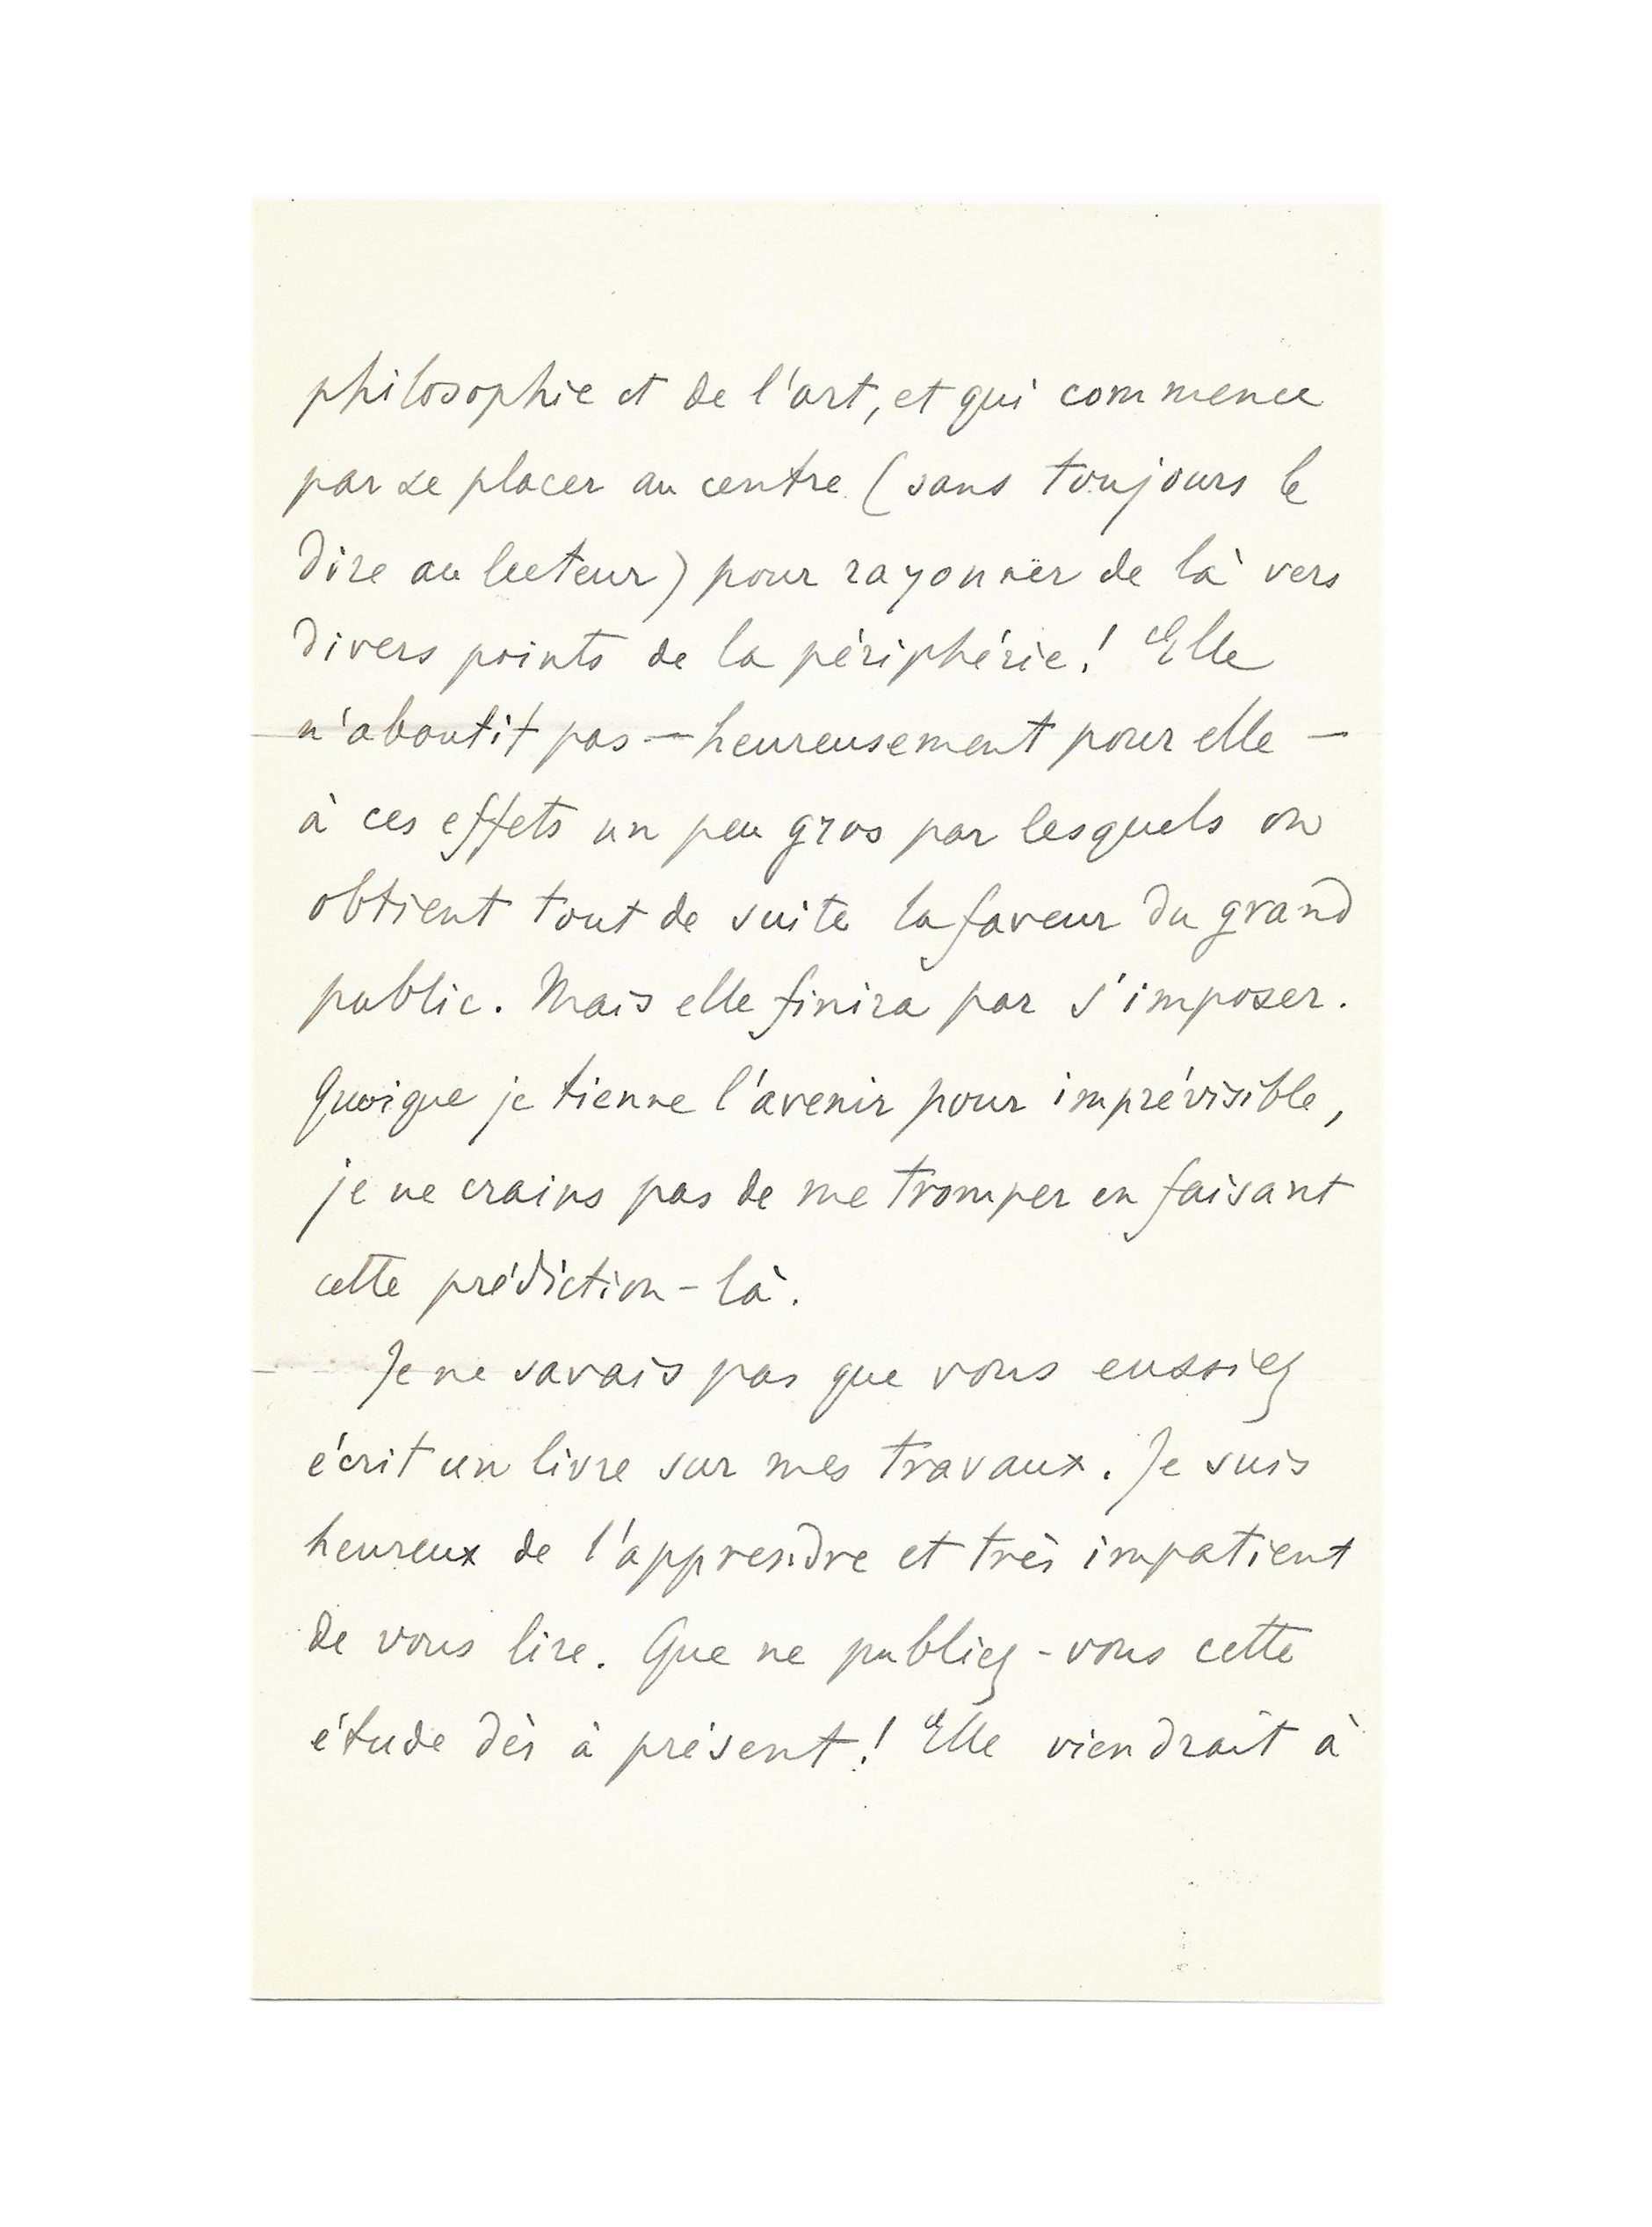 philosophie et de l'art, et qui commence
par se placer au centre (sans toujours le
dire au lecteur) pour rayonner de là vers
divers points de la périphérie ! Elle
n'aboutit pas — heureusement pour elle —
à ces effets un peu gros par lesquels on
obtient tout de suite la faveur du grand
public. Mais elle finira par s'imposer.
Quoique je tienne l'avenir pour imprévisible,
je ne crains pas de me tromper en faisant
cette prédiction-là.
Je ne savais pas que vous eussiez
écrit un livre sur mes travaux. Je suis
heureux de l'apprendre et très impatient
de vous lire. Que ne publiez-vous cette
étude dès à présent ! Elle viendrait à